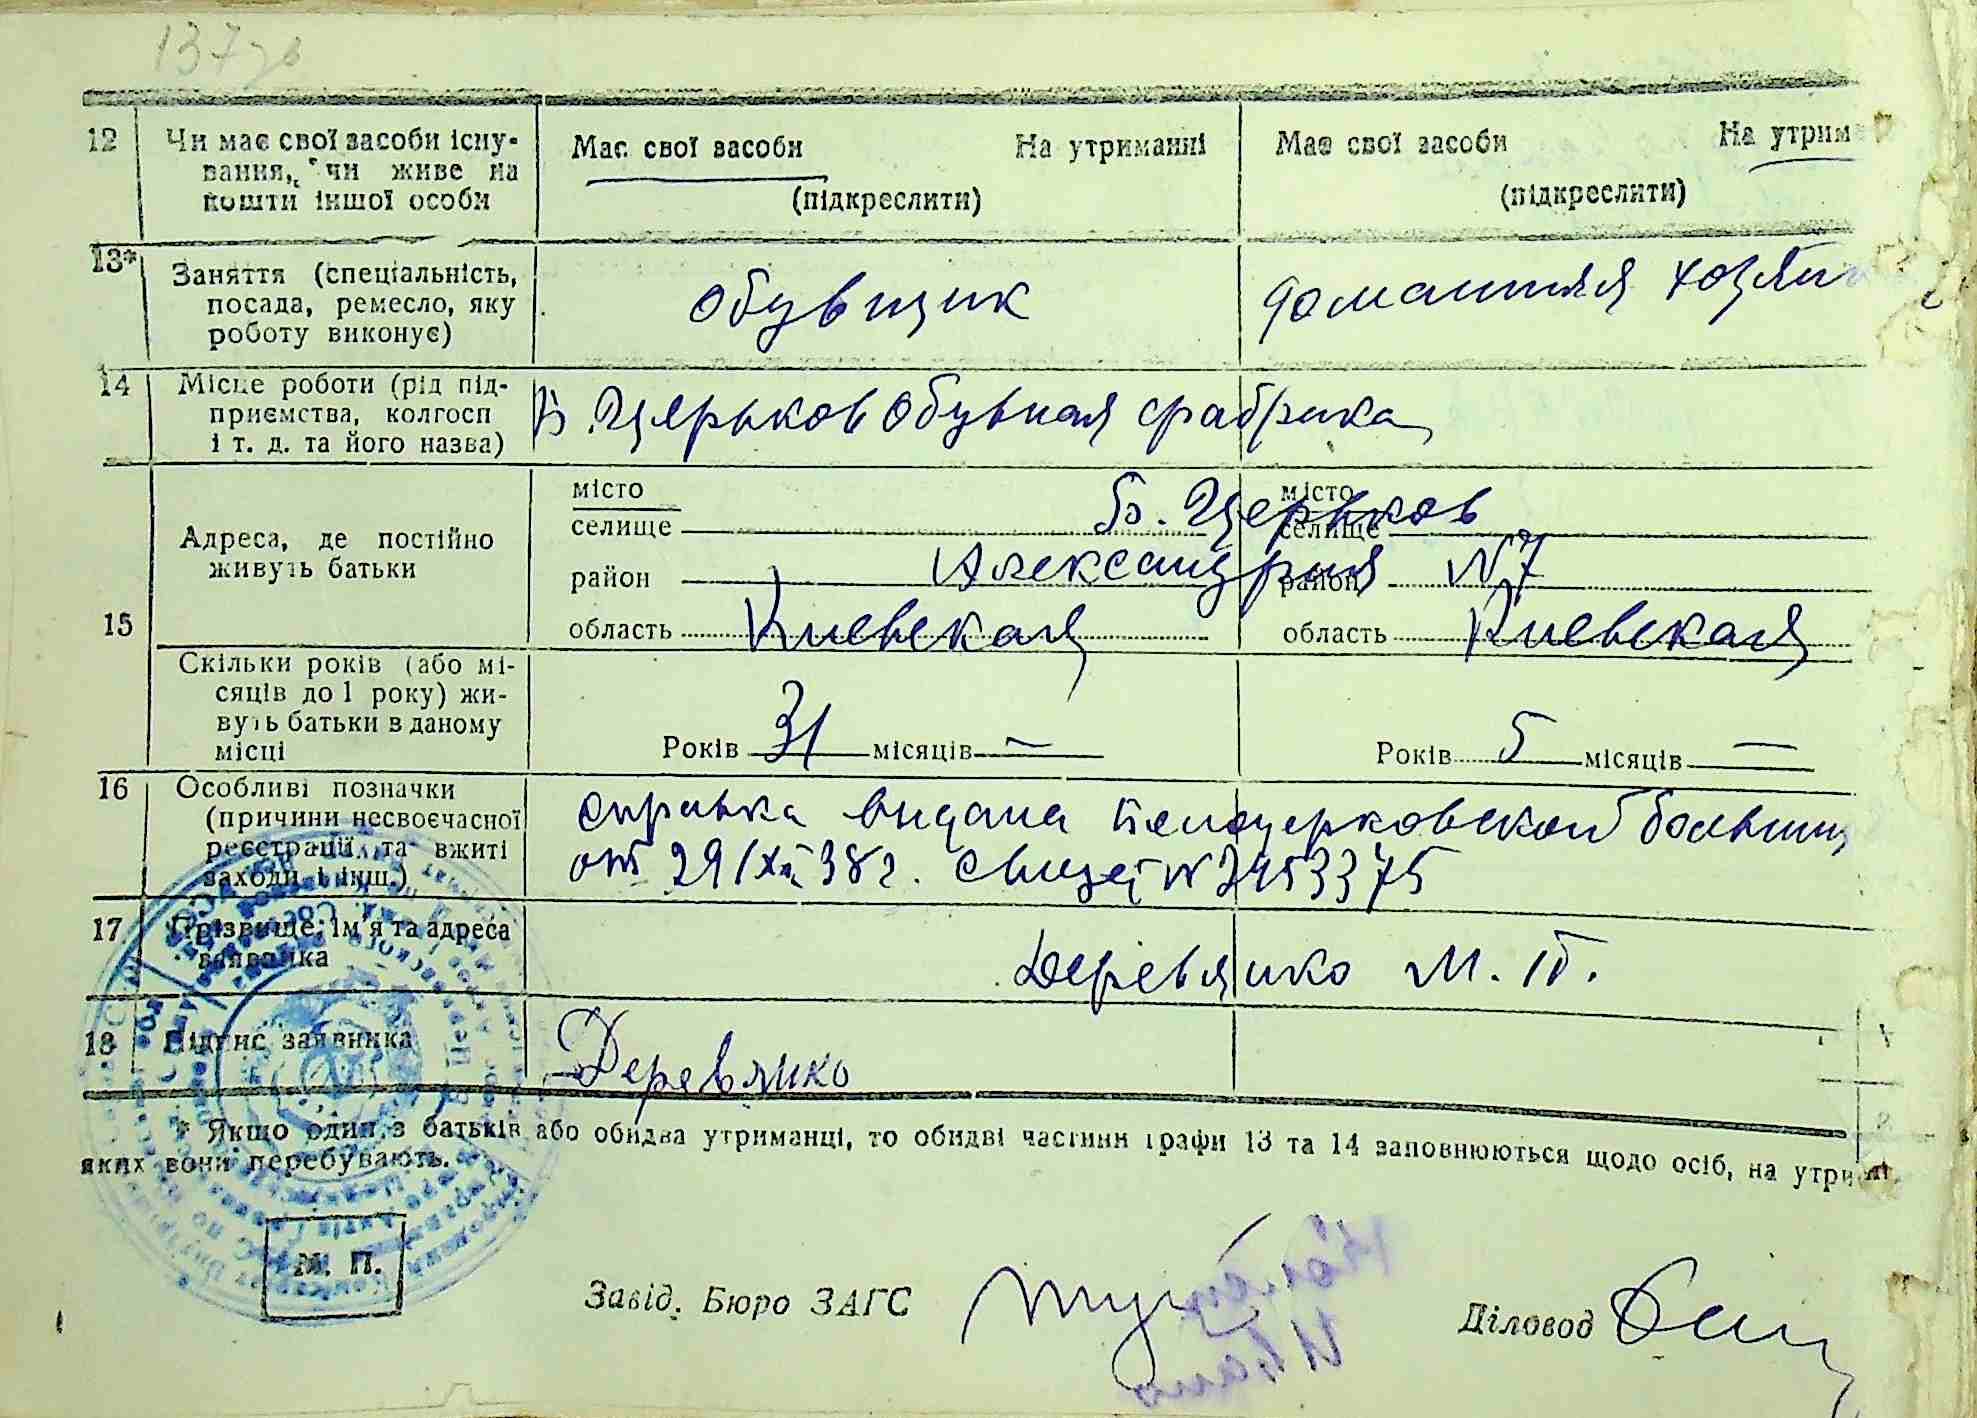 137 зв
12 Чи має свої засоби існу- Має свої засоби На утриманні Має свої засоби На утрим
вання, чи живе на (підкреслити) (підкреслити)
кошти іншої особи
13* Заняття (спеціальність, обувщик домашняя хозяй
посада, ремесло, яку
роботу виконує)
14 Місце роботи (рід під- Б. Церьков обувная фабрика
приємства, колгосп
і т. д. та його назва)
15
Адреса, де постійно
живуть батьки
місто місто
селище Б. Церьков селище
район Александрия район №7
область Киевская область Киевская
Скільки років (або мі-
сяців до 1 року) жи-
вуть батьки в даному
місці Років 31 місяців — Років 5 місяців —
16 Особливі позначки справка видана Белоцерковской больниц
(причини несвоєчасної от 29/XII 38 г. свидет №2953375
реєстрації та вжиті
заходи і інш.)
17 Прізвище, ім'я та адреса Деревянко М. П.
заявника
18 Підпис заявника Деревянко
* Якщо один з батьків або обидва утриманці, то обидві частини графи 13 та 14 заповнюються щодо осіб, на утри
яких вони перебувають.
М. П.
Завід. Бюро ЗАГС Діловод